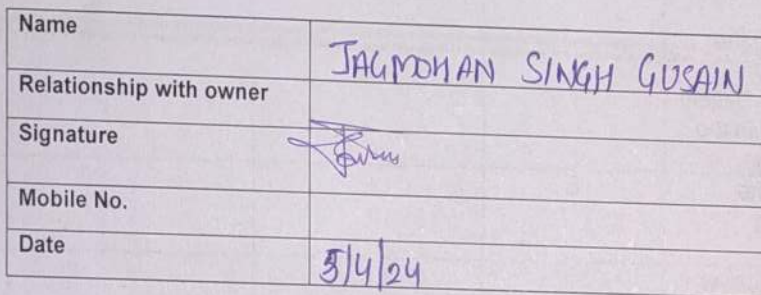 Name JAGMOHAN SINGH GUSAIN
Relationship with owner
Signature
Mobile No.
Date 5/4/24